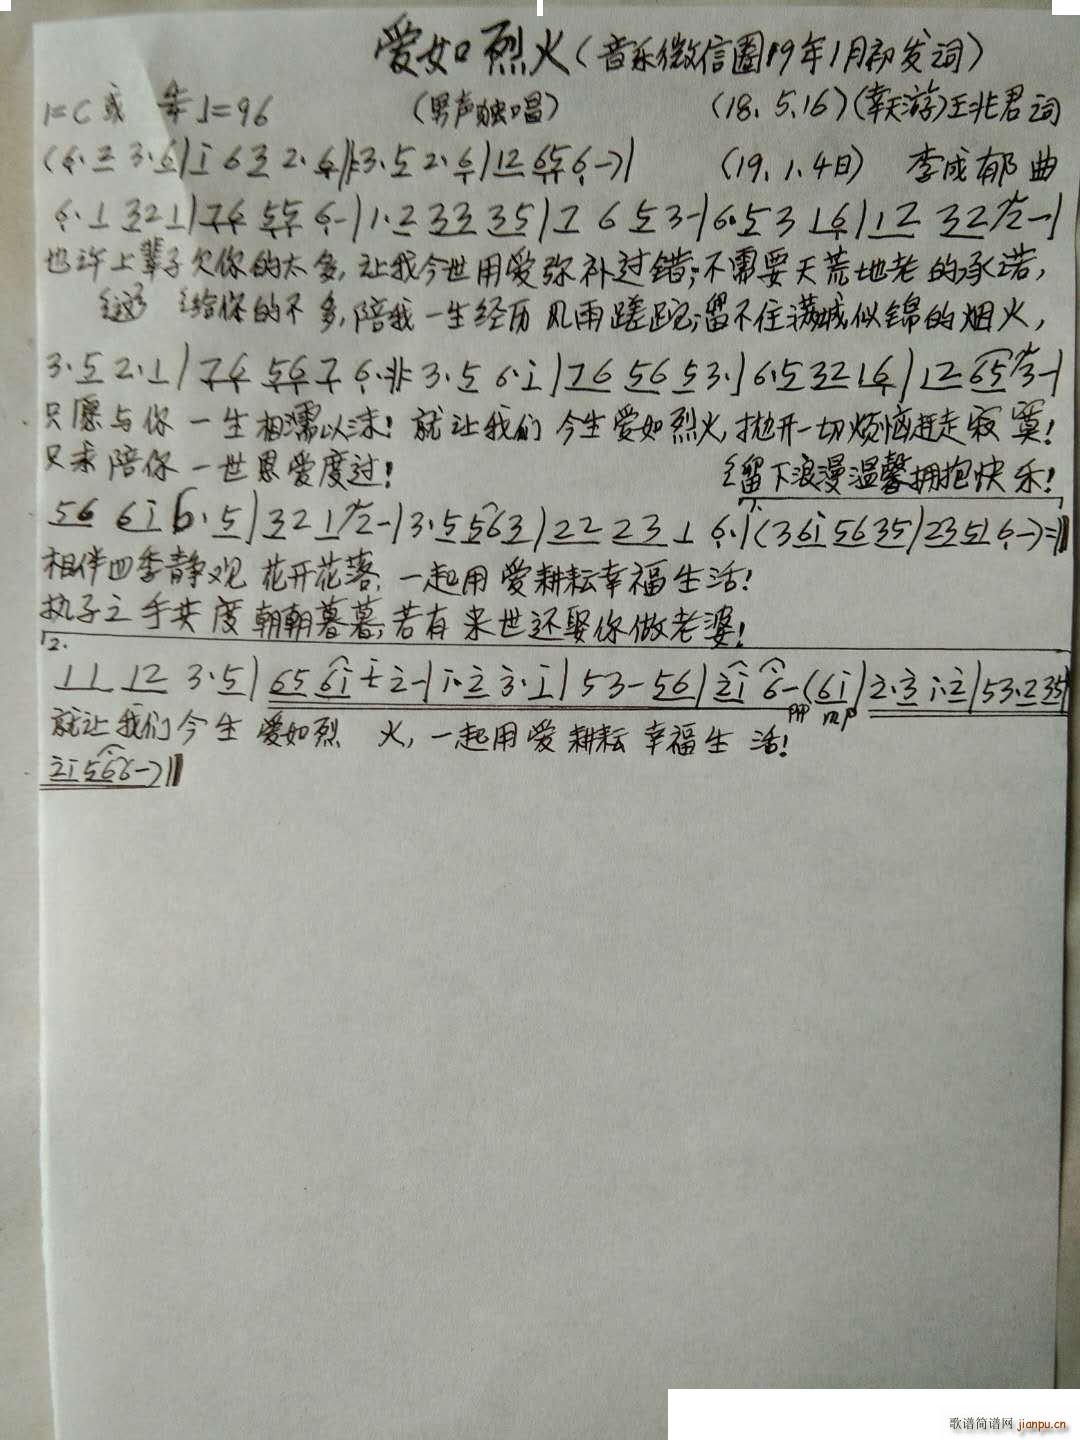 爱如烈火(音乐微信圈19年1月初发词)
1=C或 4/4 ♩=96 (男声独唱) (18.5.16)(幸天游)王兆君词
(6·2 3·6|i 6 3 2·6|3·5 2·6|12 65 6-)| (19.1.4日) 李成郁曲
6·1 321|76 55 6-|1·2 33 35|7 6 5 3-|6·5 3 16|12 32 2-|
也许上辈子欠你的太多,让我今世用爱弥补过错;不需要天荒地老的承诺,
这 给你的不多,陪我一生经历风雨蹉跎;留不住满城似锦的烟火,
3·5 2·1|76 56 7 6·|3·5 6·i|76 56 53·|6·5 32 16|12 65 3-|
只愿与你一生相濡以沫!就让我们今生爱如烈火,抛开一切烦恼赶走寂寞!
只求陪你一世恩爱度过! 留下浪漫温馨拥抱快乐!
56 6i 6·5|32 1 2-|3·5 563|22 23 1 6·|(36i 56 35|235 6-):‖
相伴四季静观花开花落,一起用爱耕耘幸福生活!
执子之手共度朝朝暮暮,若有来世还娶你做老婆!
2.
11 12 3·5|65 6i 2-|i·2 3·i|53-56|2i 6-(6i|2·3 i·2|53·235|
pp mp
就让我们今生爱如烈火,一起用爱耕耘幸福生活!
2i 566-)‖
歌谱简谱网 jianpu.cn